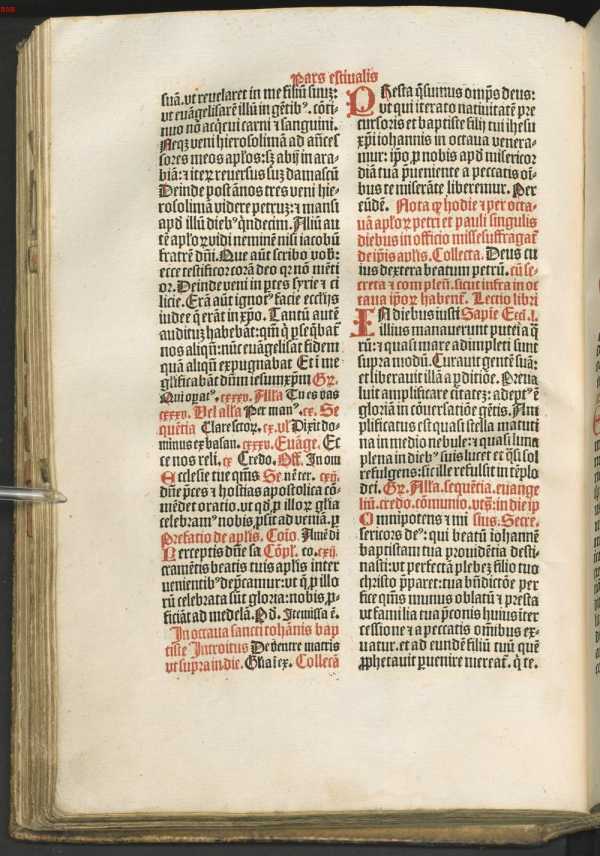 Pars estiualis
suã. vt reuelaret in me filiũ suuʒ:
vt euãgelisarẽ illũ in gẽtibꝰ. cõti-
nuo nõ acqeui carni ⁊ sanguini.
Neqʒ veni hierosolimã ad añces
sores meos apl’os: sʒ abij in ara-
biã: ⁊ iteꝝ reuersus suʒ damascũ
Deinde post ãnos tres veni hie-
rosolimã videre petruʒ: ⁊ mansi
apd illũ diebꝰ q̃ndecim. Aliũ au
tẽ apl’oꝝ vidi neminẽ nisi iacobũ
fratrẽ dñi. Que aũt scribo vob̃:
ecce testificor corã deo qꝛ nõ mẽti
or. Deinde veni in ptes syrie ⁊ ci
licie. Erã aũt ignotꝰ facie ecclijs
iudee q̃ erãt in xp̃o. Tantũ autẽ
audituʒ habebãt: qm̃ q̃ pseq̃bat̃
nos aliqñ: nũc euãgelisat fidem
quã aliqñ expugnabat Et ĩ me
glificabãt dñm iesum xpm̃ Gꝛ.
Qui opatꝰ. cxxxv. All’a Tu es vas
cxxxv. Vel all’a Per manꝰ. cx. Se
quẽtia Clare sctoꝝ. cx. vl’ Dixit do-
minus ex basan. cxxxv. Euãge. Ec
ce nos reli. cx Credo. Off. In om
Ecclesie tue qm̃s Se nẽ ter. cxij.
dñe p̃ces ⁊ hostias apostolica cõ-
mẽdet oratio. vt qd̓ ꝓ illoꝝ gl’ia
celebramꝰ nobis ꝓsit ad veniã. ꝑ
Prefatio de apl’is. Coĩo. Amẽ di
Perceptis dñe sa Cõpl’. co. cxij.
cramẽtis beatis tuis apl’is inter
venientibꝰ dep̃camur: vt q̃ ꝓ illo
rũ celebrata sũt gloria: nobis ꝓ-
ficiãt ad medelã. Pd̓. Ite missa ẽ.
In octaua sancti iohãnis bap
tiste Introitus De ventre matris
vt supra in die. Gl’ia ĩ ex. Collecta
PResta q̃sumus omp̃s deus:
vt qui iterato natiuitatẽ pre
cursoris et baptiste filij tui ihesu
xp̃i iohannis in octaua venera-
mur: ip̃o ꝓ nobis apd̓ misericor
diã tuã p̃ueniente a peccatis oĩ-
bus te miserãte liberemur. Per
eũdẽ. Nota qꝛ hodie ⁊ per octa-
uã apl’oꝝ petri et pauli singulis
diebus in officio misse suffragat̃
de ip̃is apl’is. Collecta. Deus cu
ius dextera beatum petrũ. cũ se-
creta ⁊ complen̄. sicut infra in oc
taua ip̃oꝝ habent̃. Lectio libri
IN diebus iusti Sapĩe Ecc̃i. l.
illius manauerunt putei a q̃
rũ: ⁊ quasi mare adimpleti sunt
supra modũ. Curauit gentẽ suã:
et liberauit illã a ꝑditiõe. Preua
luit amplificare ciitateʒ: adeptꝰ ẽ
gloriã in cõuersatiõe gẽtis. Am
plificatus est quasi stella matuti
na in medio nebule: ⁊ quasi luna
plena in diebꝰ suis lucet et q̃si sol
refulgens: sic ille refulsit in tẽplo
dei. Gꝛ. All’a. sequẽtia. euange
liũ. credo. cõmunio. vts̃: in die ip
Omnipotens ⁊ mi sius. Secre.
sericors deꝰ: qui beatũ iohannẽ
baptistam tua prouidẽtia desti-
nasti: vt perfectã plebeʒ filio tuo
christo p̃paret: tua bñdictõe per
fice qm̃s munus oblatũ ⁊ presta
vt familia tua p̃conis huius iter
cessione ⁊ a peccatis om̃ibus ex-
uatur. et ad eundẽ filiũ tuũ quẽ
ꝓphetauit ꝑuenire mereat̃. q̃ te.